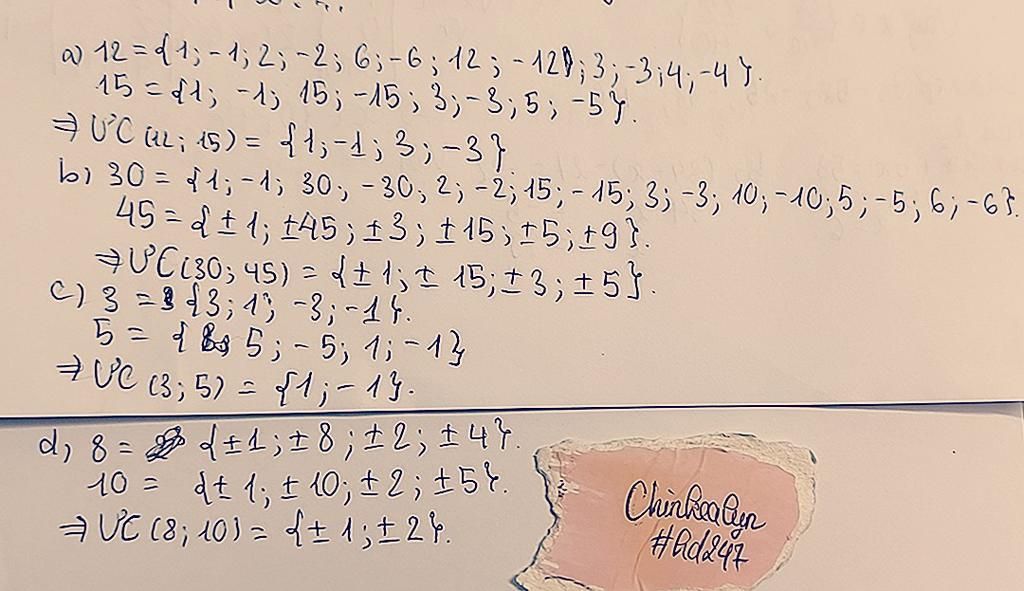 a) 12 = {1; -1; 2; -2; 6; -6; 12; -12; 3; -3; 4; -4}.
15 = {1; -1; 15; -15; 3; -3; 5; -5}.
⇒ ƯC (12; 15) = {1; -1; 3; -3}
b) 30 = {1; -1; 30; -30; 2; -2; 15; -15; 3; -3; 10; -10; 5; -5; 6; -6}.
45 = {±1; ±45; ±3; ±15; ±5; ±9}.
⇒ ƯC (30; 45) = {±1; ±15; ±3; ±5}.
c) 3 = {3; 1; -3; -1}.
5 = {5; -5; 1; -1}
⇒ ƯC (3; 5) = {1; -1}.
d, 8 = {±1; ±8; ±2; ±4}.
10 = {±1; ±10; ±2; ±5}.
⇒ ƯC (8; 10) = {±1; ±2}.